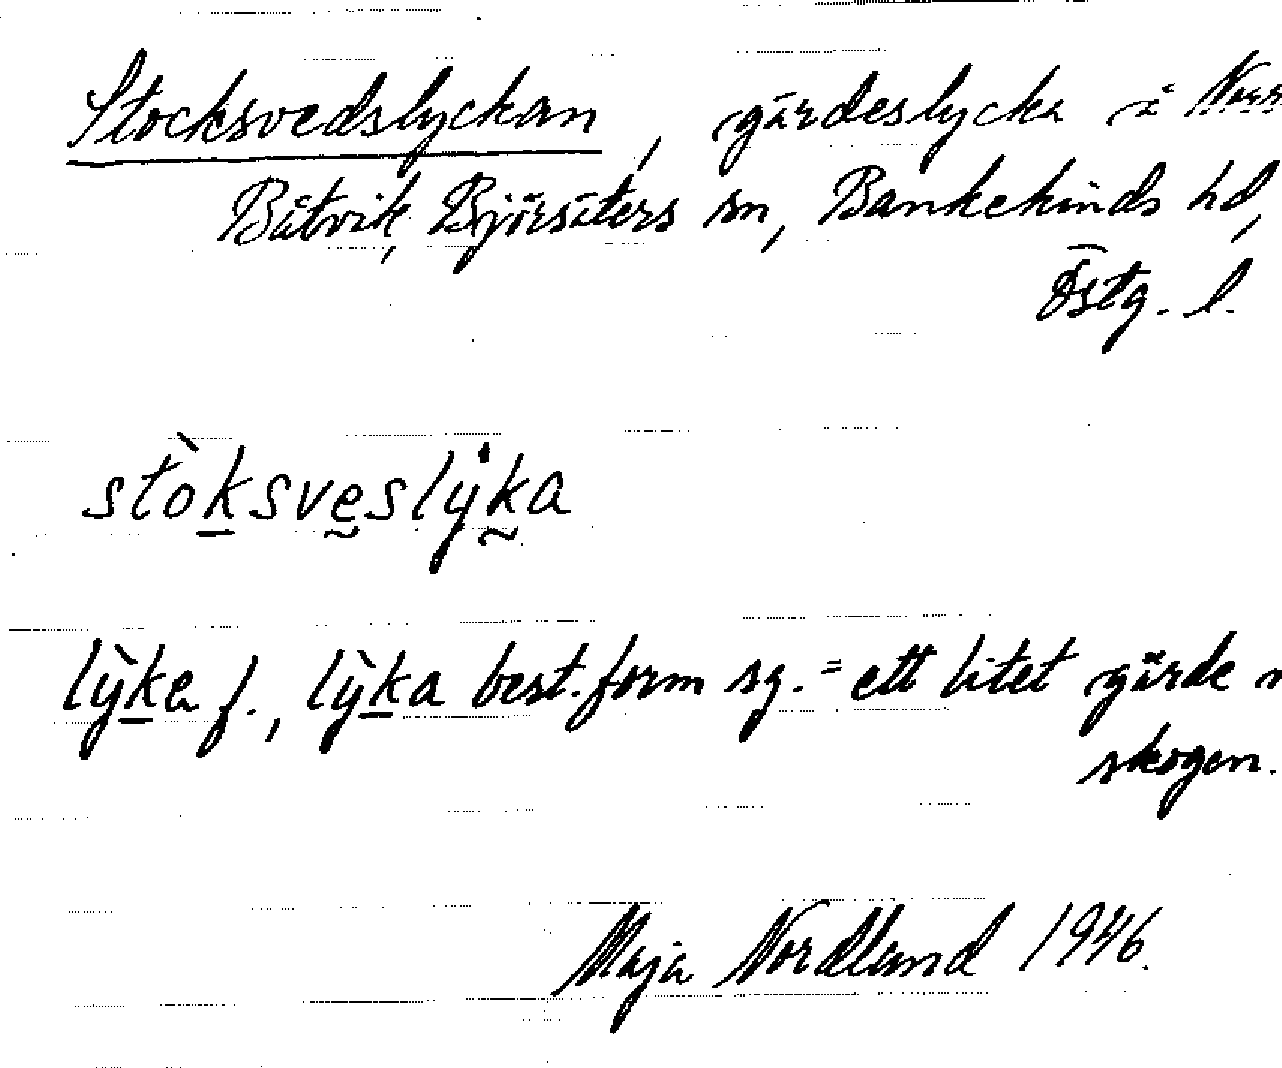 Stocksvedslyckan, gärdeslycka i Norr
Båtvik, Björsäters sn, Bankekinds hd,
Östg. l.
stòk̲svḛslẙk̰a
lỳk̲a f., lỳk̲a best. form sg. = ett litet gärde
skogen.
Maja Nordland 1946.